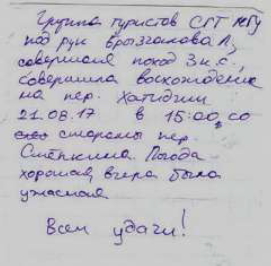 Группа туристов СГТ МГУ
под рук Брызгалова А,
совершая поход 3 к.с.,
совершила восхождение
на пер. Хатиджи
21.08.17 в 15:00, со
стороны пер.
Стёпкина. Погода
хорошая, вчера была
ужасная
Всем удачи!